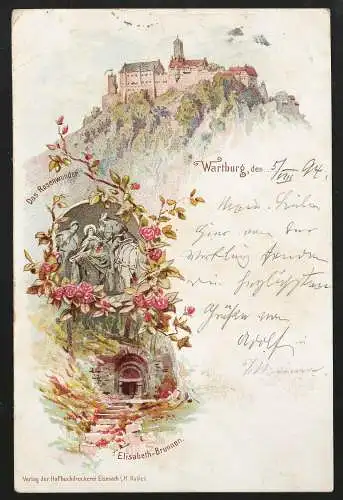 Das Rosenwunder.
Wartburg, den 5/VIII 94.
Meine Lieben
Hier von der
Wartburg senden
die herzlichsten
Grüße von
Adolf
Elisabeth-Brunnen.
Verlag der Hofbuchdruckerei Eisenach